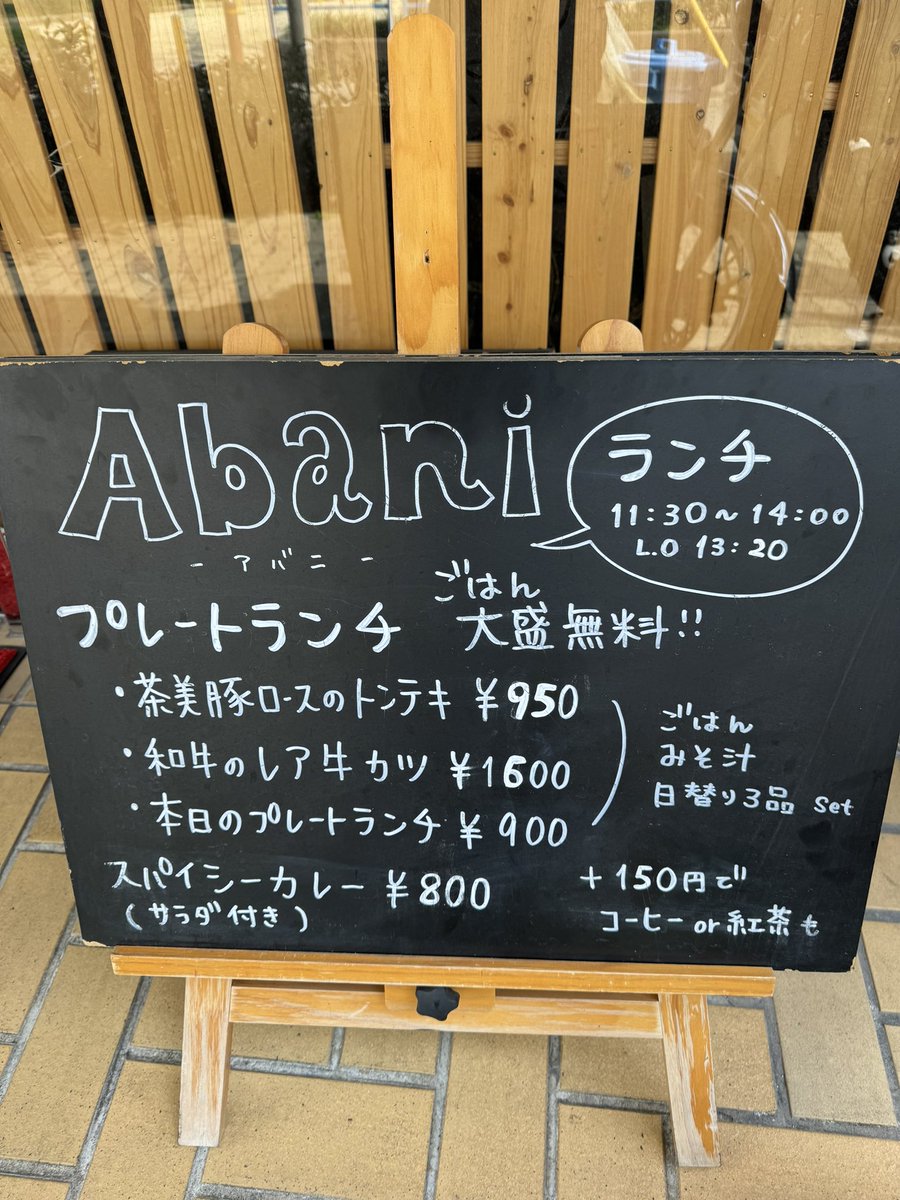 Abani
-アバニ-
ランチ
11:30〜14:00
L.O 13:20
プレートランチ
ごはん
大盛無料!!
・茶美豚ロースのトンテキ ¥950
・和牛のレア牛カツ ¥1600
・本日のプレートランチ ¥900
ごはん
みそ汁
日替り3品 set
スパイシーカレー ¥800
(サラダ付き)
+150円で
コーヒー or 紅茶も